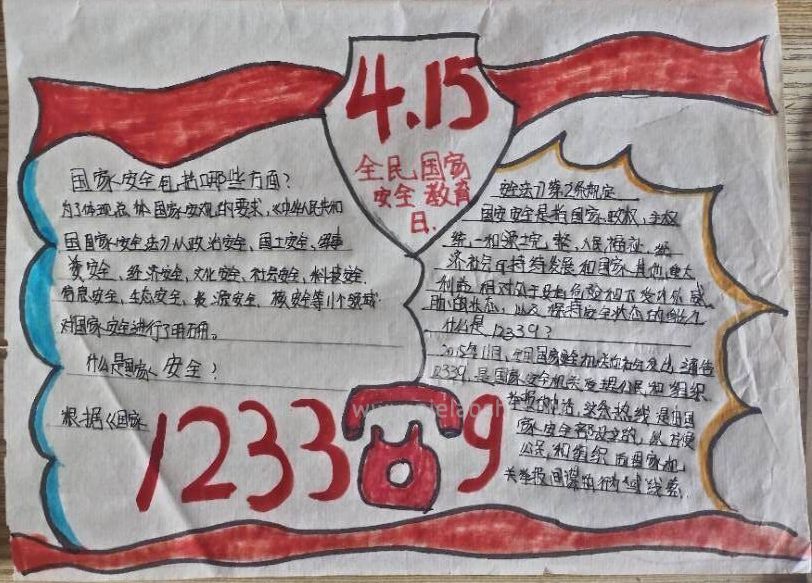 4.15
全民国家
安全教育
日.
国家安全包括哪些方面?
为了体现总体国家安观的要求,《中华人民共和
国国家安全法》从政治安全、国土安全、军事
安全、经济安全、文化安全、社会安全、科技安全、
信息安全、生态安全、资源安全、核安全等11个领域
对国家安全进行了明确。
什么是国家安全?
根据《国家
安全法》第2条规定
国安安全是指国家政权、主权
统一和领土完整、人民福祉、经
济社会可持续发展和国家其他重大
利益相对处于没有危险和不受内外威
胁的状态,以及保障安全状态的能力
什么是12339?
2015年11月,全国国家安全机关向社会发出通告
12339是国家安全机关受理公民和组织
举报的电话,这条热线是由国
家安全部设立的,以方便
公民和组织向国家机
关举报间谍的行为或线索.
1233 9